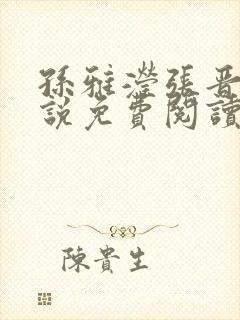 孫雅瀅張晋
說免費閱讀
陳貴生